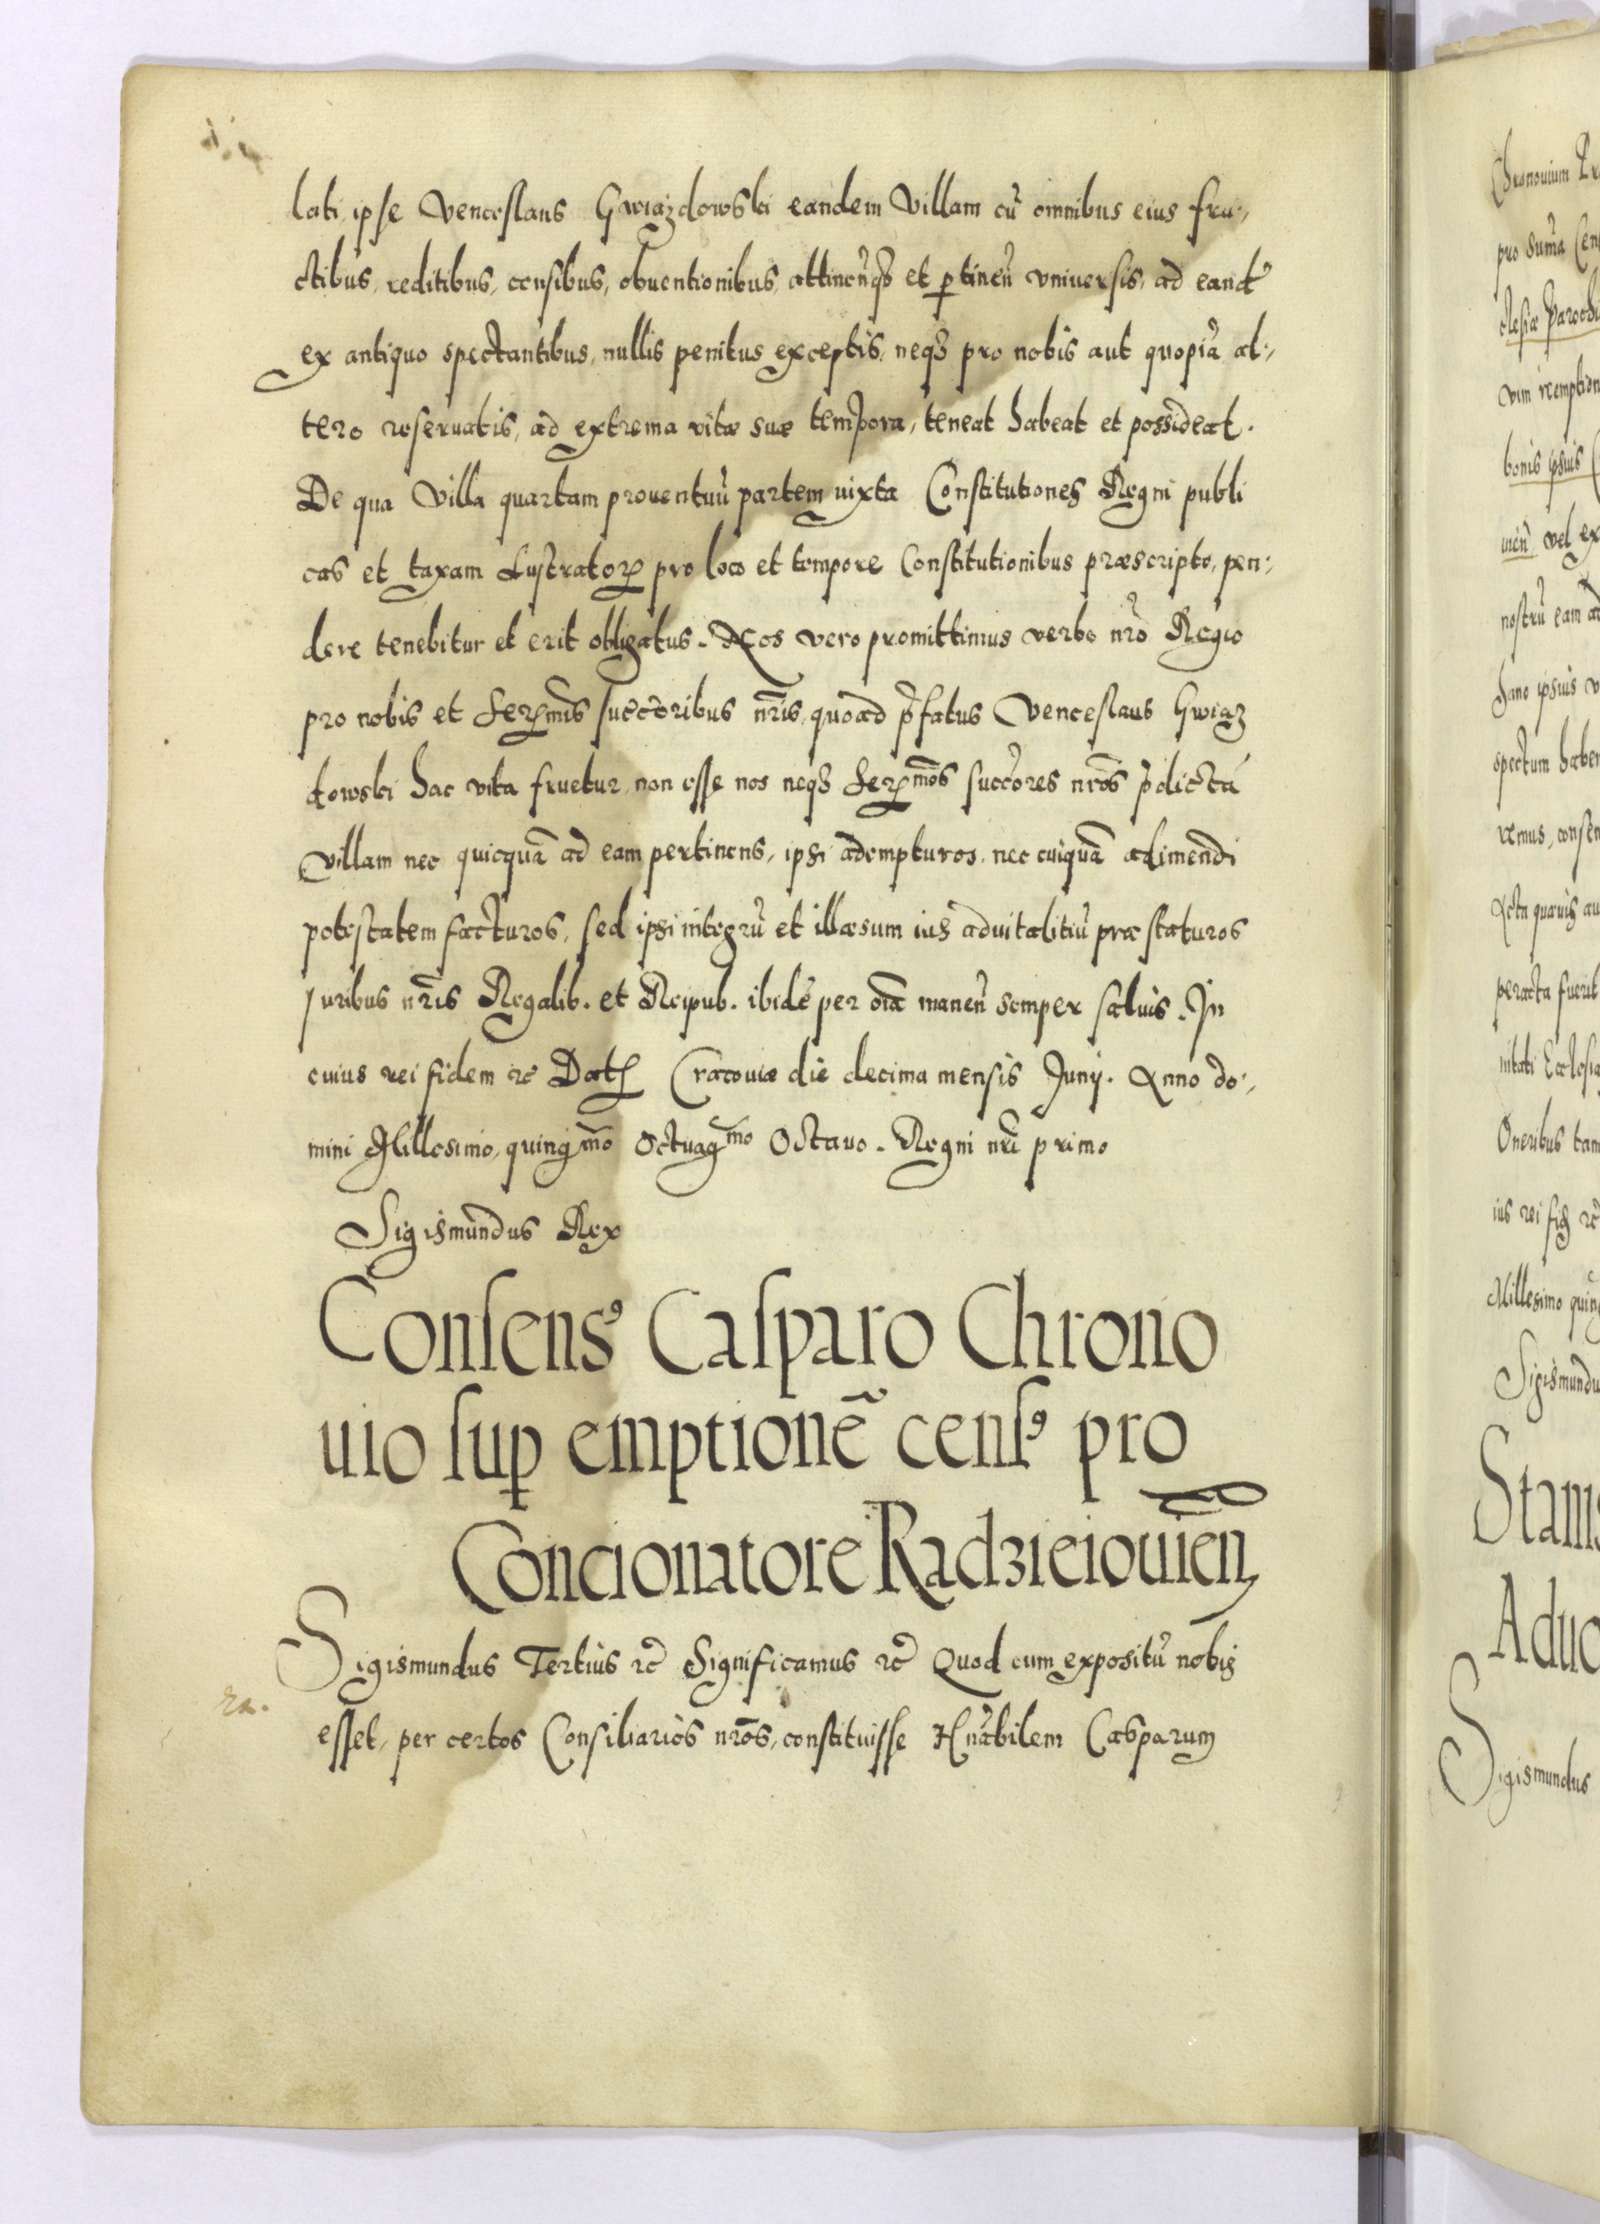 lati ipse Venceslaus Gwiazdowski eandem Villam cũ omnibus eius fru-
ctibus, reditibus, censibus, obuentionibus, attinen̄qȝ et ꝑtinen̄ vniuersis, ad eandẽ
ex antiquo spectantibus, nullis penitus exceptis, neqȝ pro nobis aut quopiã al-
tero reseruatis, ad extrema vitæ suæ tempora, teneat habeat et possideat.
De qua Villa quartam prouentuũ partem iuxta Constitutiones Regni publi
cas et taxam Lustratoꝝ pro loco et tempore Constitutionibus præscripto, pen-
dere tenebitur et erit obligatus. Nos vero promittimus verbo nr̃o Regio
pro nobis et Serꝫmis succc̃oribus nr̃is, quoad p̃fatus Venceslaus Gwiaz
dowski hac vita fruetur, non esse nos neqȝ Serꝫmos succ̃ores nr̃os p̃dictã
villam nec quicquã ad eam pertinens, ipsi adempturos, nec cuiquã adimendi
potestatem facturos, sed ipsi integrũ et illæsum ius aduitalitiũ præstaturos
Juribus nr̃is Regalib. et Reipub. ibidẽ per oĩa manen̄ semper saluis. In
cuius rei fidem etc Datꝭ Cracouiæ die decima mensis Junij. Anno do-
mini Millesimo, quingmo Octuagmo Octauo. Regni nr̃i primo
Sigismundus Rex
Consensꝰ Casparo Chrono
uio suꝑ emptionẽ censꝰ pro
Concionatore Radzieiouien̄
Sigismundus Tertius etc Significamus etc Quod cum expositũ nobis
esset, per certos Consiliarios nr̃os, constituisse Hnr̃abilem Casparum
Chronouium
pro sum̃a
clesiæ Parochi
vim reemption
bonis ipsius
uien̄ vel ex
nostrũ eam ad
ipsius
spectum haben
remus, consen
Acta quæuis au
peracta fuerit
nitati Ecclesia
Oneribus tam
ius rei fiꝫ etc
Millesimo quing
Sigismundu
Stanis
Aduo
Sigismundus